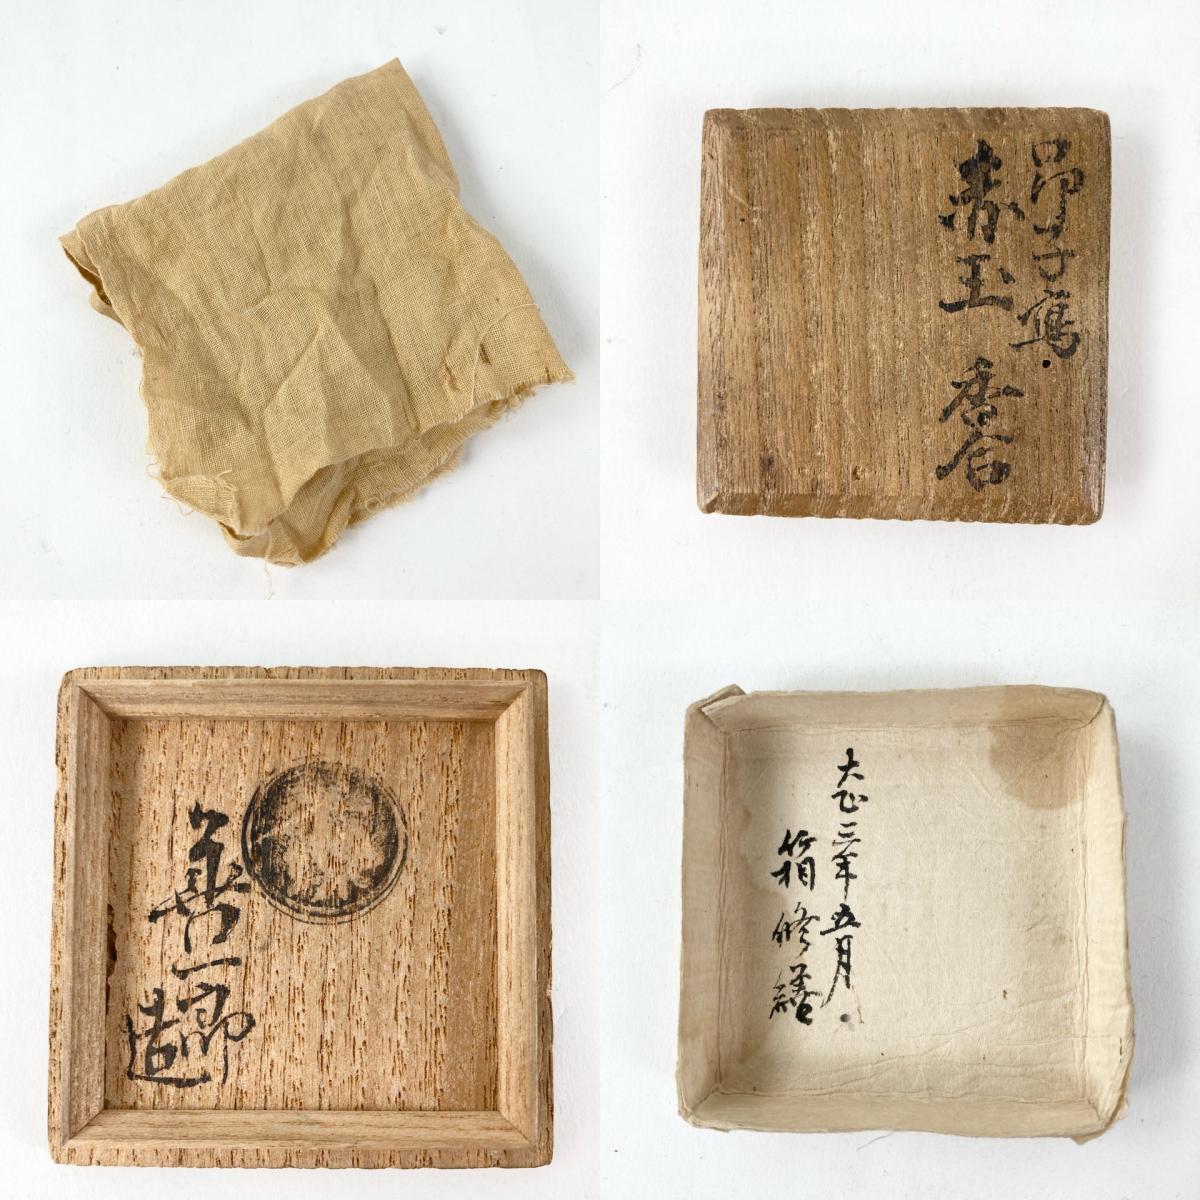 昻子寫
赤玉 香合
善一郎
造
大正三年五月
箱修繕